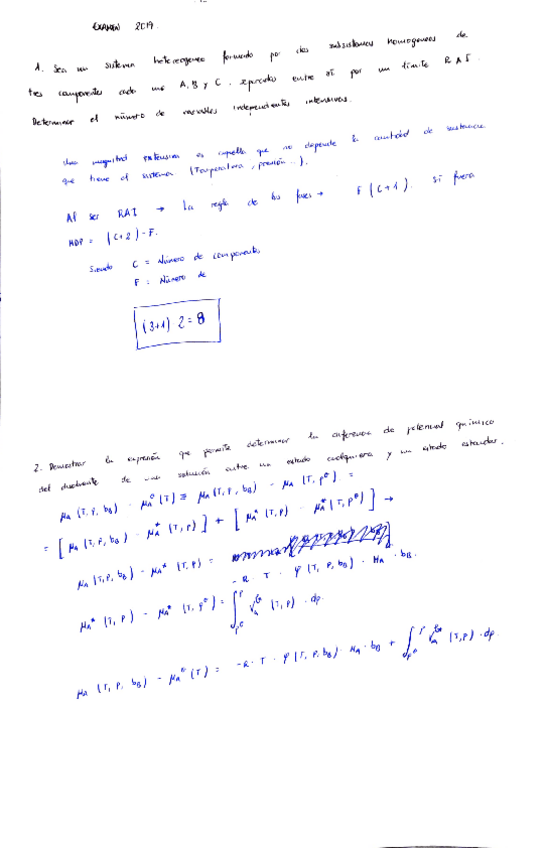 EXAMEN 2019.
1. Sea un sistema heterogeneo formado por dos subsistemas homogeneos de
tres componentes cada uno A, B y C, separados entre sí por un límite R A I.
Determinar el número de variables independientes intensivas.
Una magnitud es aquella que no depende la cantidad de sustancia
que tiene el sistema (Temperatura, presión...).
Al ser RAI → La regla de las fases → F (C+1). si fuera
MDP = (C+2)-F.
Siendo C = Número de componentes
F = Número de
(3+1) 2 = 8
2. Demostrar la expresión que permite determinar la diferencia de potencial químico
del disolvente de una solución entre un estado cualquiera y un estado estandar.
μA (T, P, bB) - μA° (T) ≡ μA (T, P, bB) - μA (T, p°) =
= [μA (T, P, bB) - μA* (T, P)] + [μA* (T, P) - μA* (T, p°)] →
μA (T, P, bB) - μA* (T, P) =
- R · T · φ (T, P, bB) · MA · bB.
μA* (T, P) - μA* (T, p°) = ∫ (T, P) · dp.
μA (T, P, bB) - μA° (T) = - R · T · φ (T, P, bB) · MA · bB + ∫ (T, P) · dp.